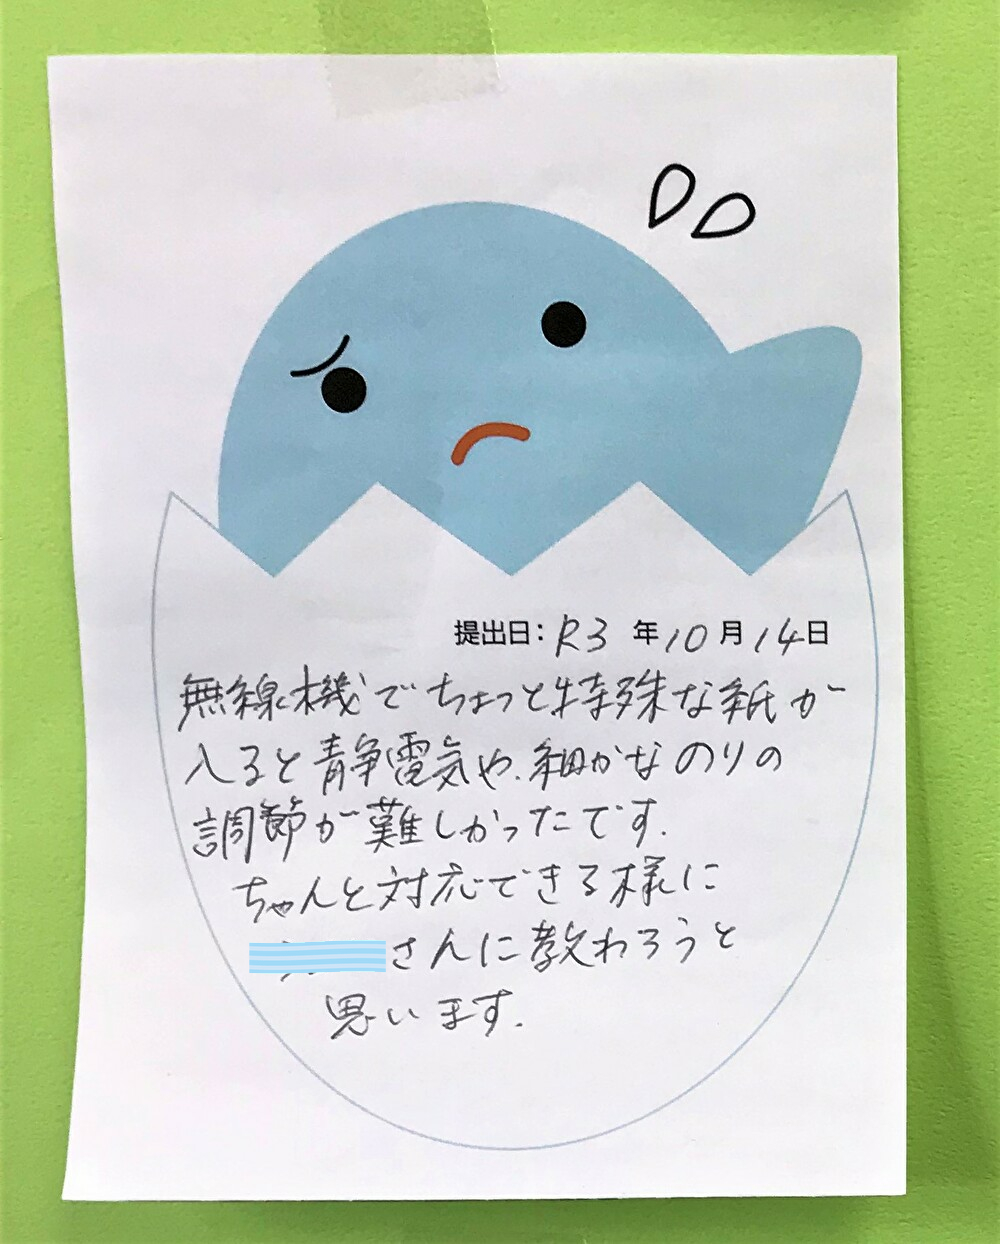 提出日：R3 年10月14日
無線機でちょっと特殊な紙が
入ると静争電気や、細かなのりの
調節が難しかったです。
ちゃんと対応できる様に
さんに教わろうと
思います。